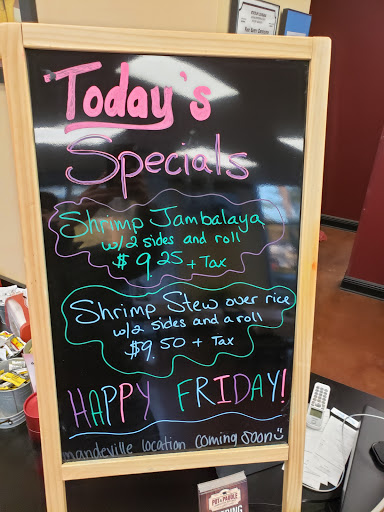 Today's
Specials
Shrimp Jambalaya
w/2 sides and roll
$9.25 + Tax
Shrimp Stew over rice
w/2 sides and a roll
$9.50 + Tax
HAPPY FRIDAY!
mandeville location coming soon
POT & PADDLE